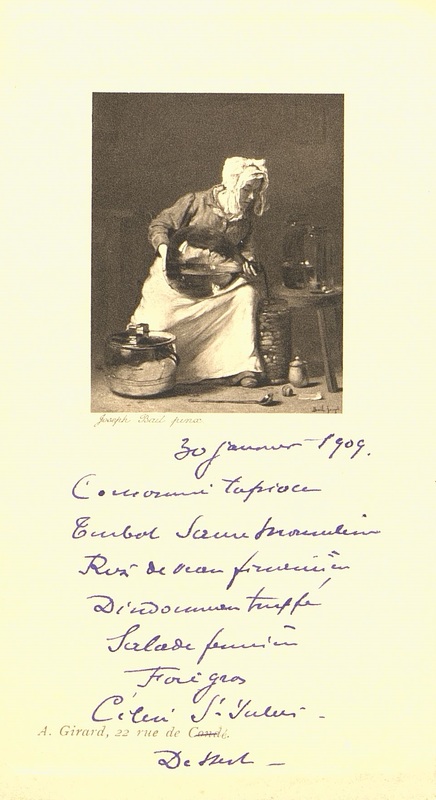 Joseph Bail pinx.
30 Janvier 1909.
Consommé tapioca
Turbot Sauce Mousseline
Ris de veau financière
Dindonneau truffé
Salade
Foie gras
Céleri St
A. Girard, 22 rue de Condé.
Dessert —